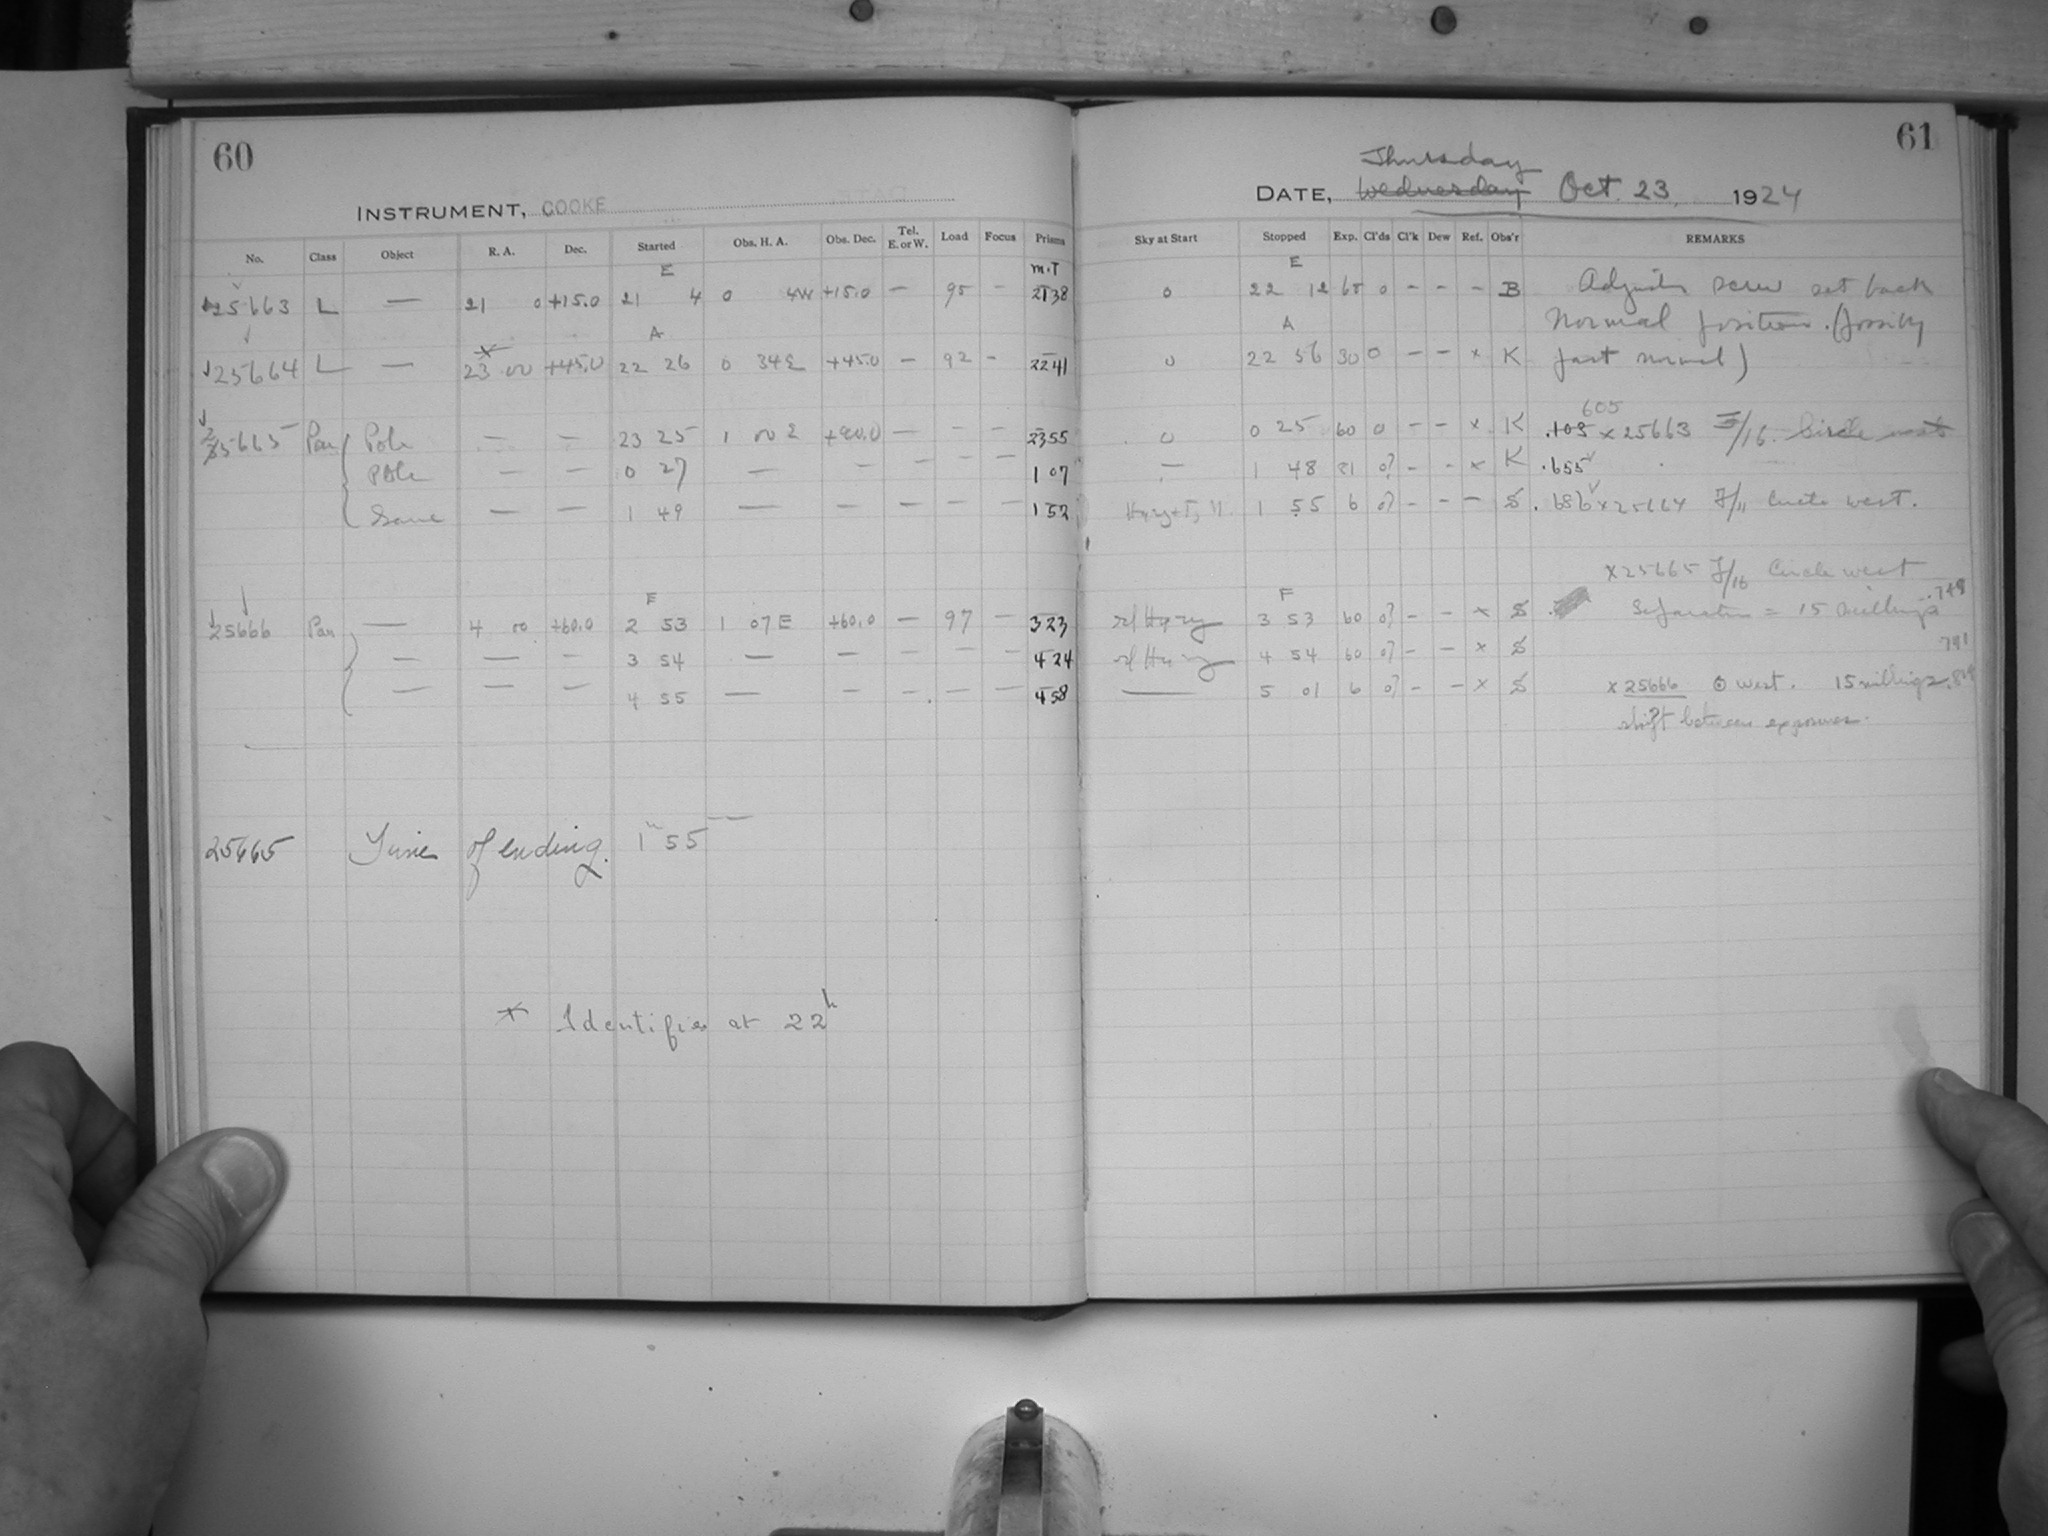 60
INSTRUMENT, COOKE
No. Class Object R. A. Dec. Started Obs. H. A. Obs. Dec. Tel. E. or W. Load Focus Prisms
E m.T
25663 L — 21 0 +15.0 21 4 0 4W +15.0 — 95 - 2138
A
25664 L — 23 00 +45.0 22 26 0 34E +45.0 — 92 - 2241
25665 Pan Pole — — 23 25 1 00 E +90.0 — - - 2355
Pole — — 0 27 — — — — — 1 07
Same — — 1 49 — — — — — 152
E
25666 Pan — 4 00 +60.0 2 53 1 07 E +60.0 — 97 — 323
— — — 3 54 — — — — — 424
— — — 4 55 — — — — — 458
25665 Time of ending. 1 55
* Identifies at 22h
61
Thursday
DATE, Wednesday Oct. 23, 1924
Sky at Start Stopped Exp. Cl'ds Cl'k Dew Ref. Obs'r REMARKS
E
0 22 12 68 0 - - - B Adjusting screw set back
A Normal position. (possibly
0 22 56 30 0 - - x K past normal)
605
0 0 25 60 0 - - x K .105 x 25663 F/16. Circle west
— 1 48 81 0? - - x K .655
1 55 6 0? - - - S .686 x 25664 F/11 Circle west.
x 25665 F/16 Circle west
F .748
Hazy 3 53 60 0? - - x S Separation = 15 millings
4 54 60 0? - - x S 791
— 5 01 6 0? - - x S x 25666 west. 15 millings
shift between exposures.